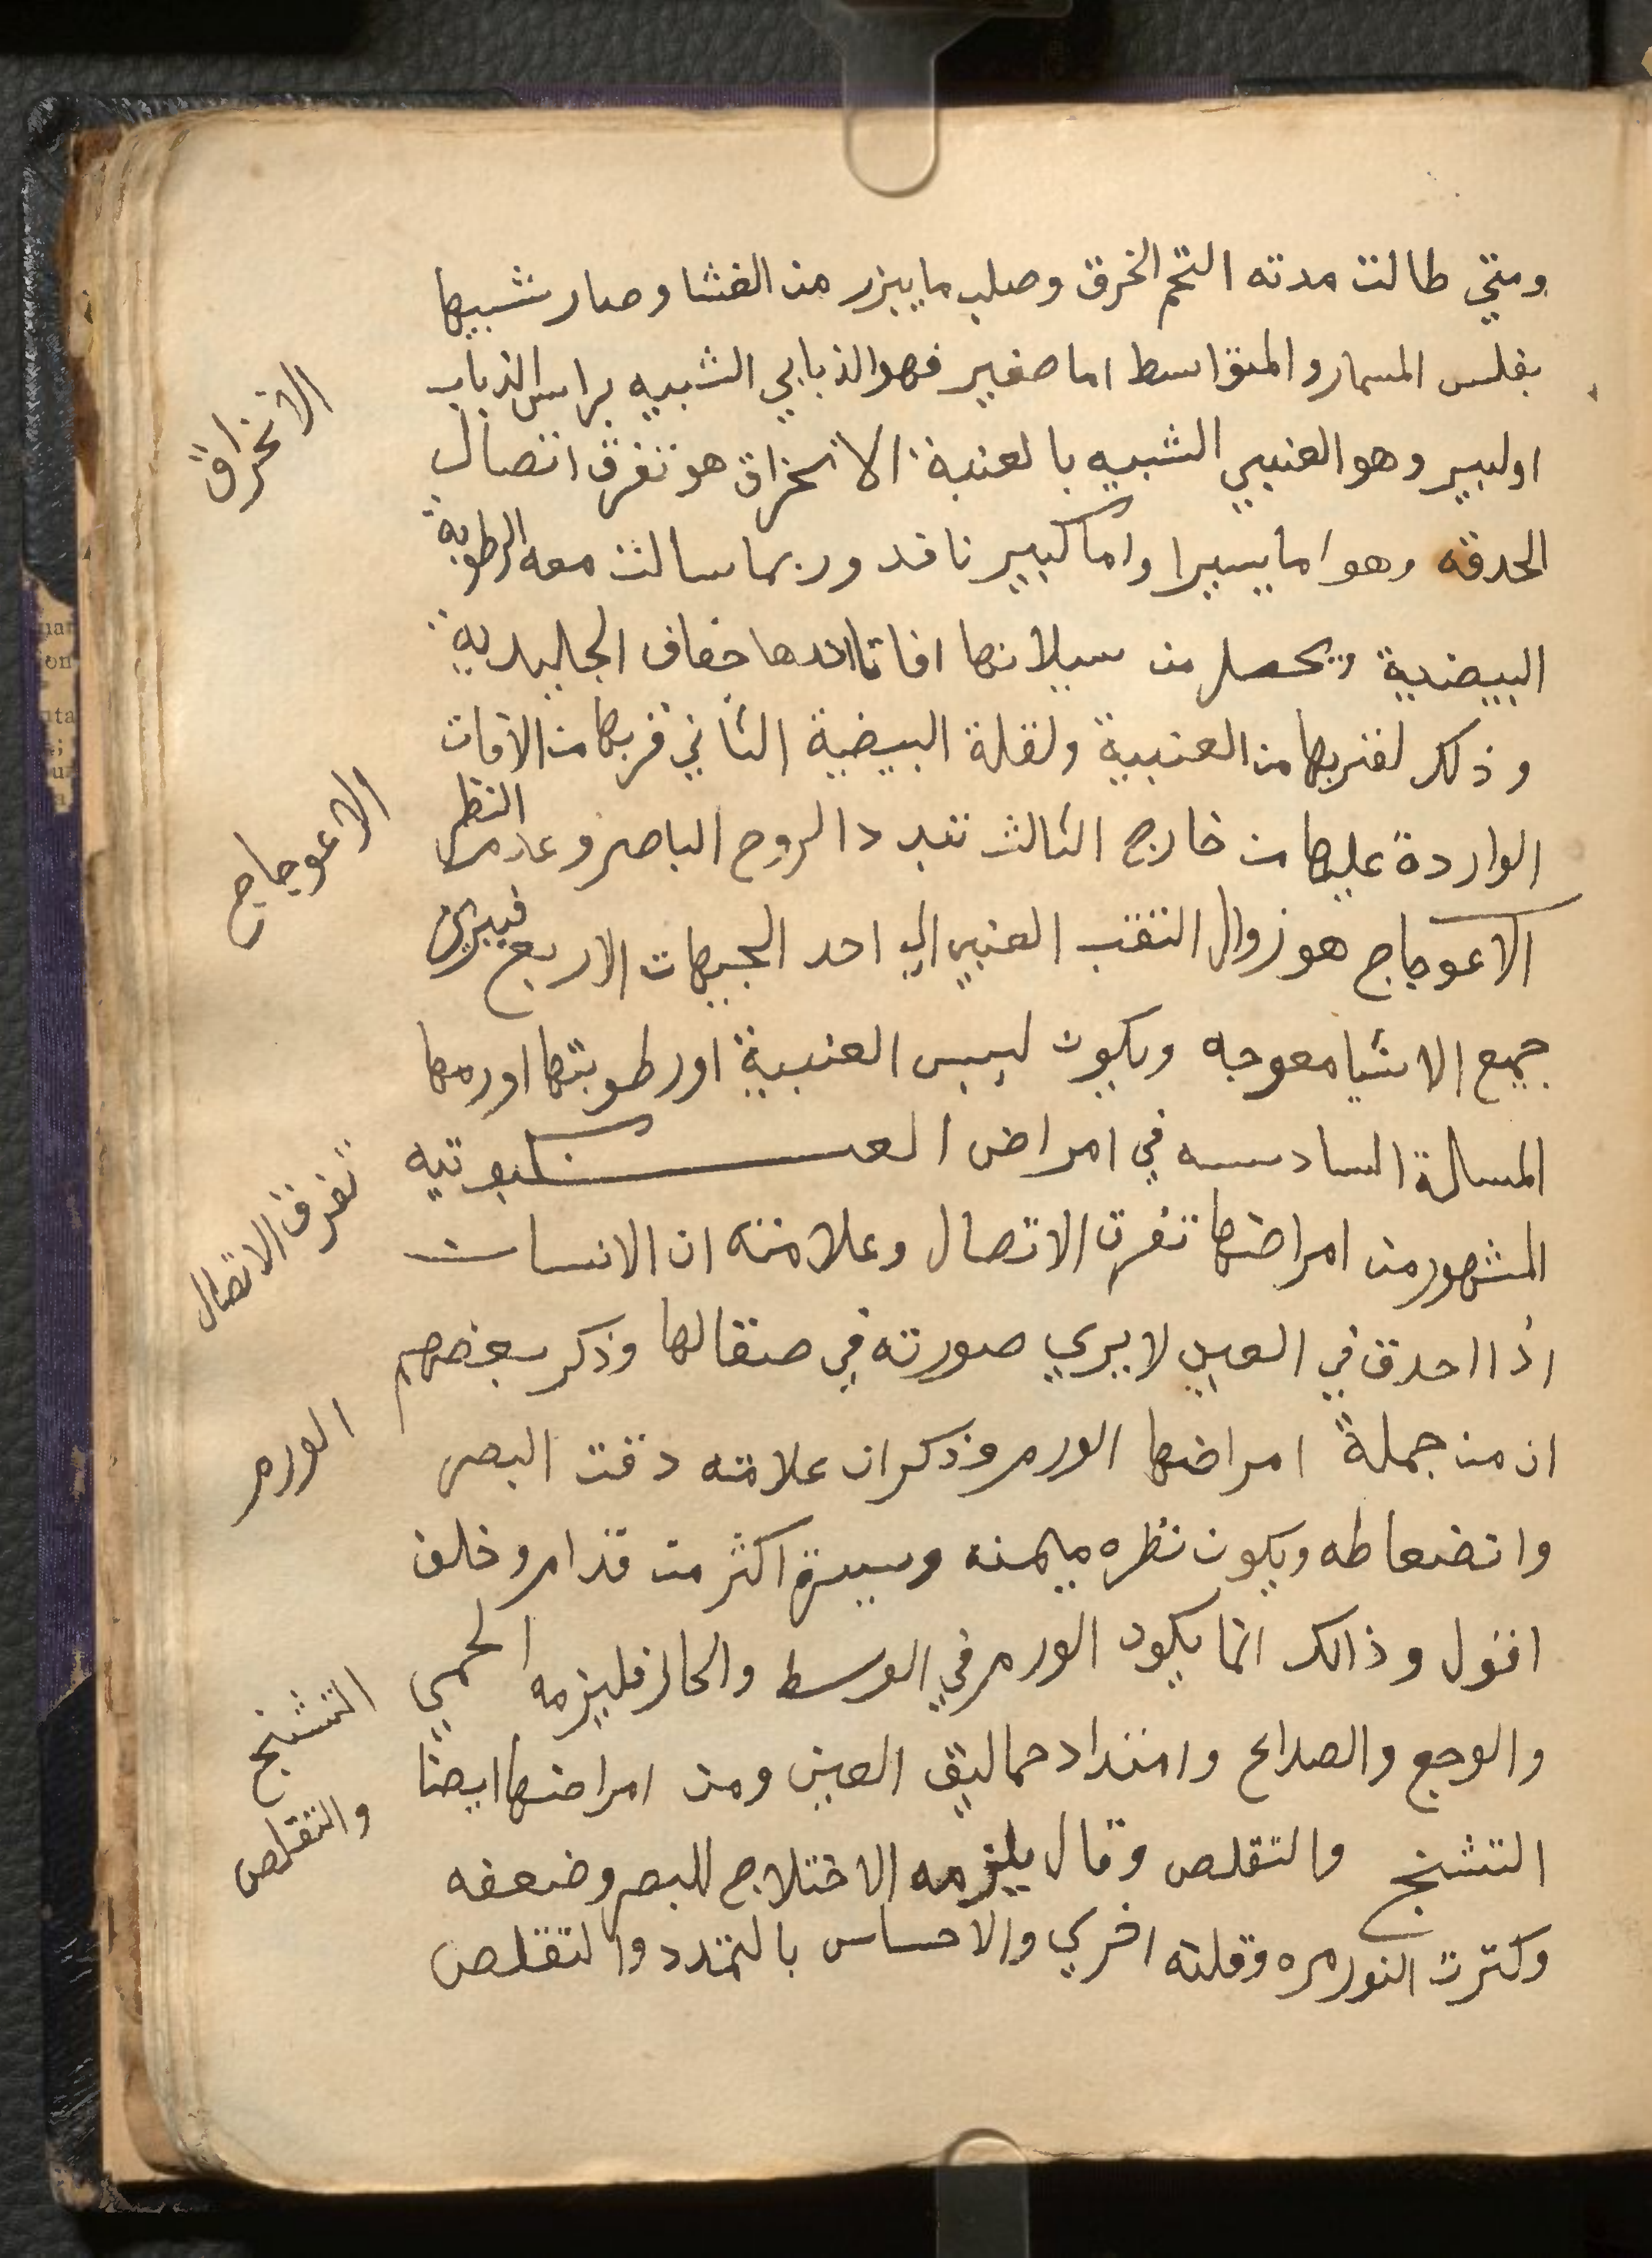 ومتي طالت مدته التحم الخرق وصلب ما يبزر من الغشا وصار شبيها
بفلس المسمار والمتواسط اما صغير فهو الذبابي الشبيه براس الذباب
او كبير وهو العنبي الشبيه بالعنبة الانخراق هو تفرق اتصال
الانخراق
الحدقه وهو اما يسيرا واما كبير نافد وربما سالت معه الرطوبة
البيضية ويحصل من سيلانها افات احدها جفاف الجاليدية
وذلك لقربها من العنبية ولقلة البيضية الثاني قربها من الافات
الواردة عليها من خارج الثالث تبدد الروح الباصر وعدم النظر
الاعوجاج
الاعوجاج هو زوال الثقب العنبي الي احد الجيهات الاربع فيري
جميع الاشيا معوجه ويكون ليبس العنبية او رطوبتها او رمها
المسالة السادسه في امراض العنكبوتيه
المشهور من امراضها تفرق الاتصال وعلامته ان الانسان
تفرق الاتصال
اذا احدق في العين لا يري صورته في صقالها وذكر بعضهم
ان من جملة امراضها الورم وذكر ان علامته دقت البصر
الورم
وانضعاطه ويكون نظره ميمنه وميسرة اكثر من قدام وخلف
اقول وذالك انما يكون الورم في الوسط والحار فليزمه الحمي
والوجع والصداع وامتداد حماليق العين ومن امراضها ايضا
التشنج
والتقلص
التشنج والتقلص وقال يلزمه الاختلاج للبصر وضعفه
وكترت النور مره وقلته اخري والاحساس بالتمدد والتقلص